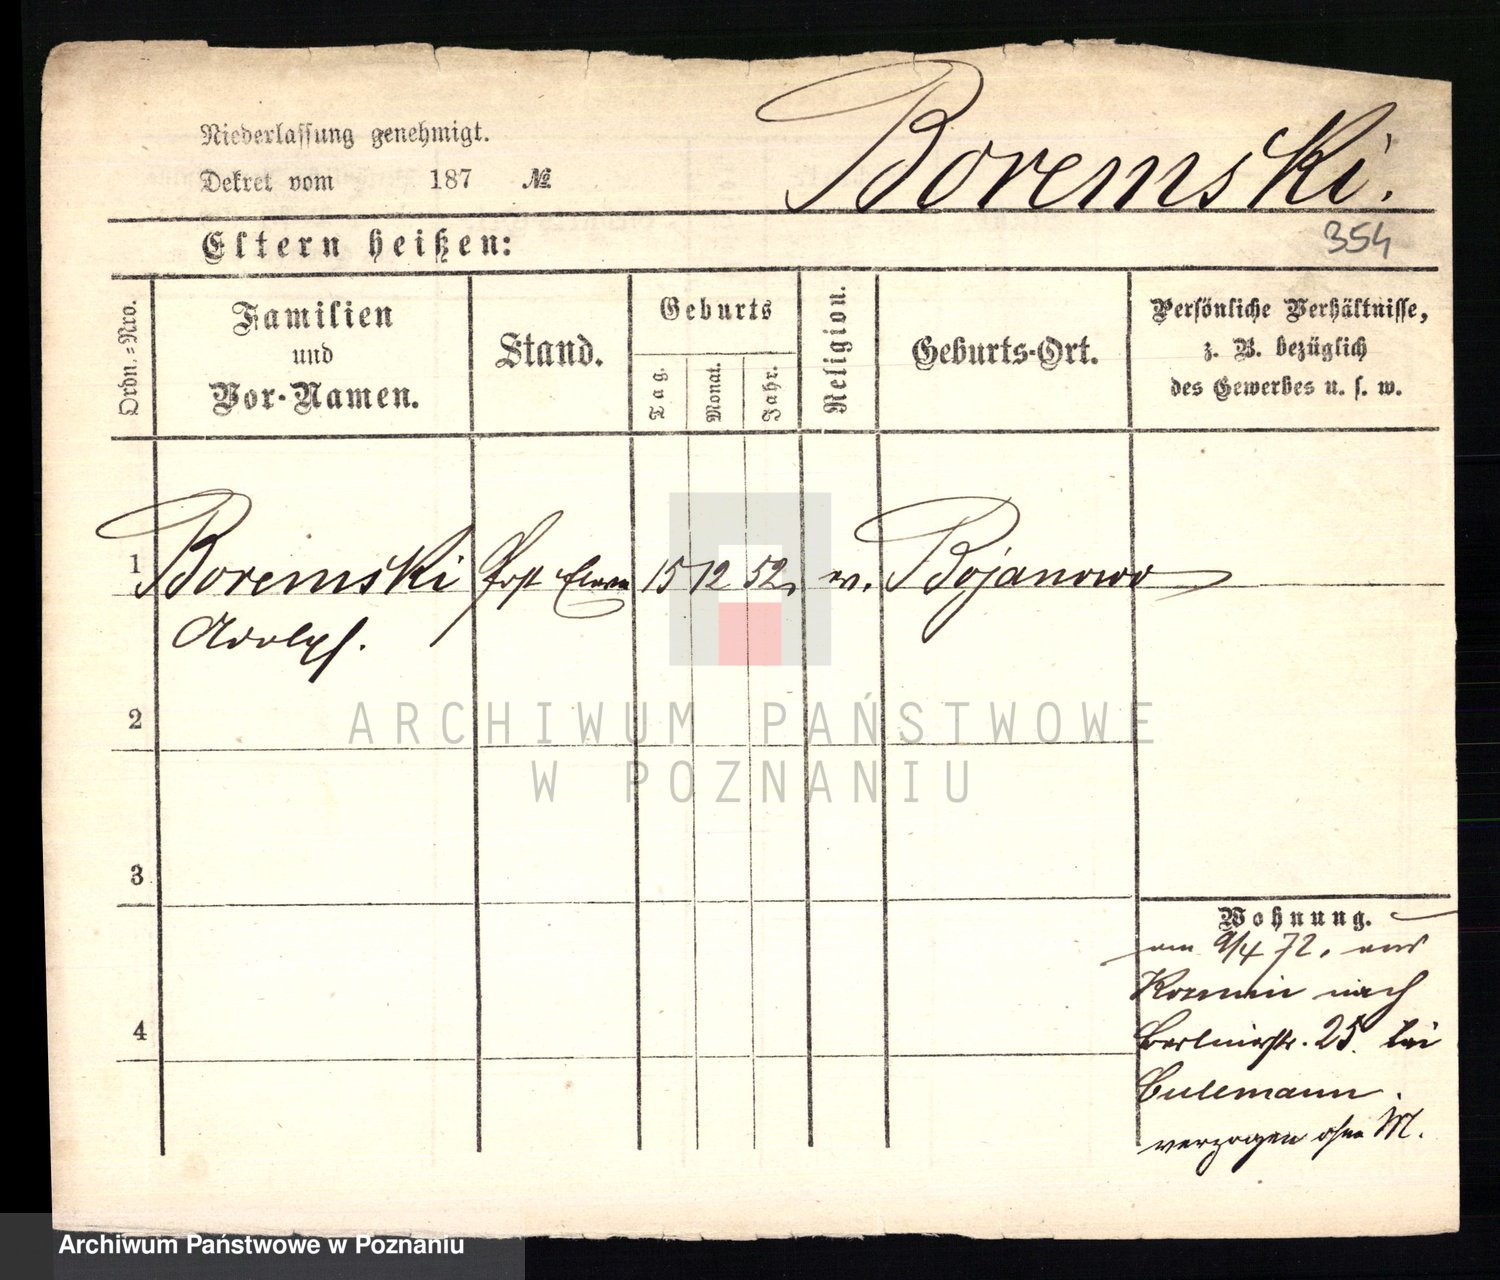 Niederlassung genehmigt.
Dekret vom 187 №
Boremski.
354
Eltern heißen:
Ordn.=Nro.
Familien
und
Vor-Namen.
Stand.
Geburts
Tag.
Monat.
Jahr.
Religion.
Geburts-Ort.
Persönliche Verhältnisse,
z. B. bezüglich
des Gewerbes u. s. w.
1 Boremski Post Eleve 15 12 52. ev. Bojanowo
Adolph.
2
3
4
Wohnung.
am 9/4 72. aus
nach
Berlinerstr. 25. bei
verzogen ohne M.
ARCHIWUM PAŃSTWOWE
W POZNANIU
Archiwum Państwowe w Poznaniu